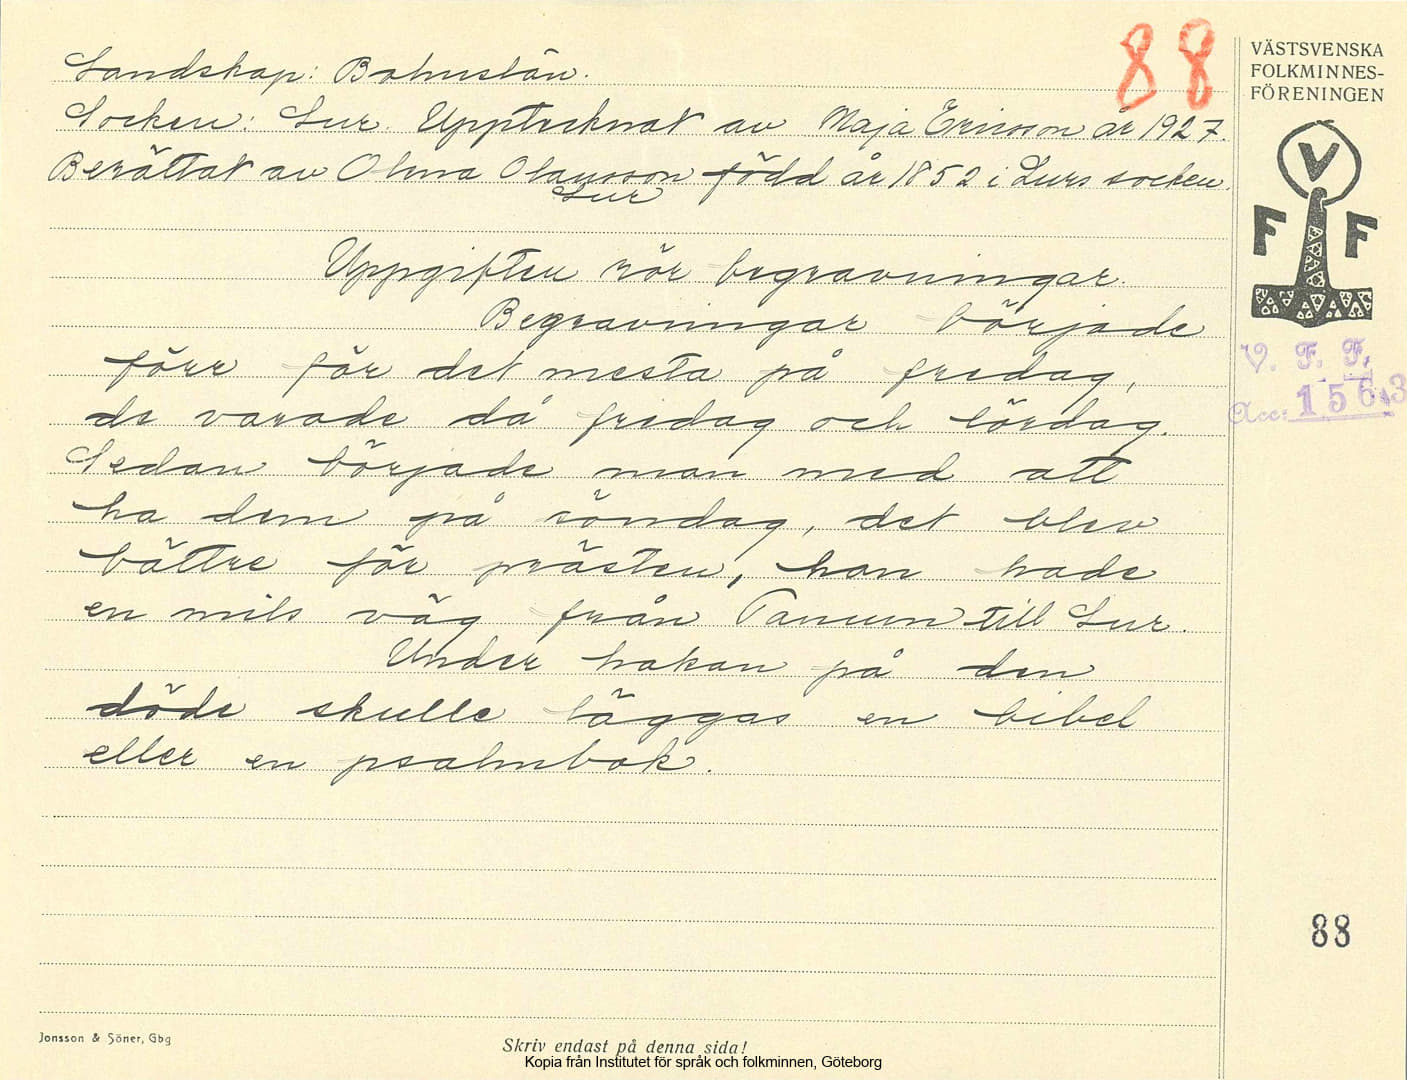 88
Landskap: Bohuslän.
Socken: Lur. Upptecknat av Maja Ericson år 1927.
Berättat av Olma Olausson född år 1852 i Lurs socken.
Lur
Uppgiften rör begravningar.
Begravningar började
förr för det mesta på fredag,
de varade då fredag och lördag.
Sedan började man med att
ha dem på söndag, det blev
bättre för prästen, han hade
en mils väg från Tanum till Lur.
Under hakan på den
döde skulle läggas en bibel
eller en psalmbok.
VÄSTSVENSKA
FOLKMINNES-
FÖRENINGEN
V
F F
V. F. F.
Acc: 1563
88
Jonsson & Söner, Gbg
Skriv endast på denna sida!
Kopia från Institutet för språk och folkminnen, Göteborg